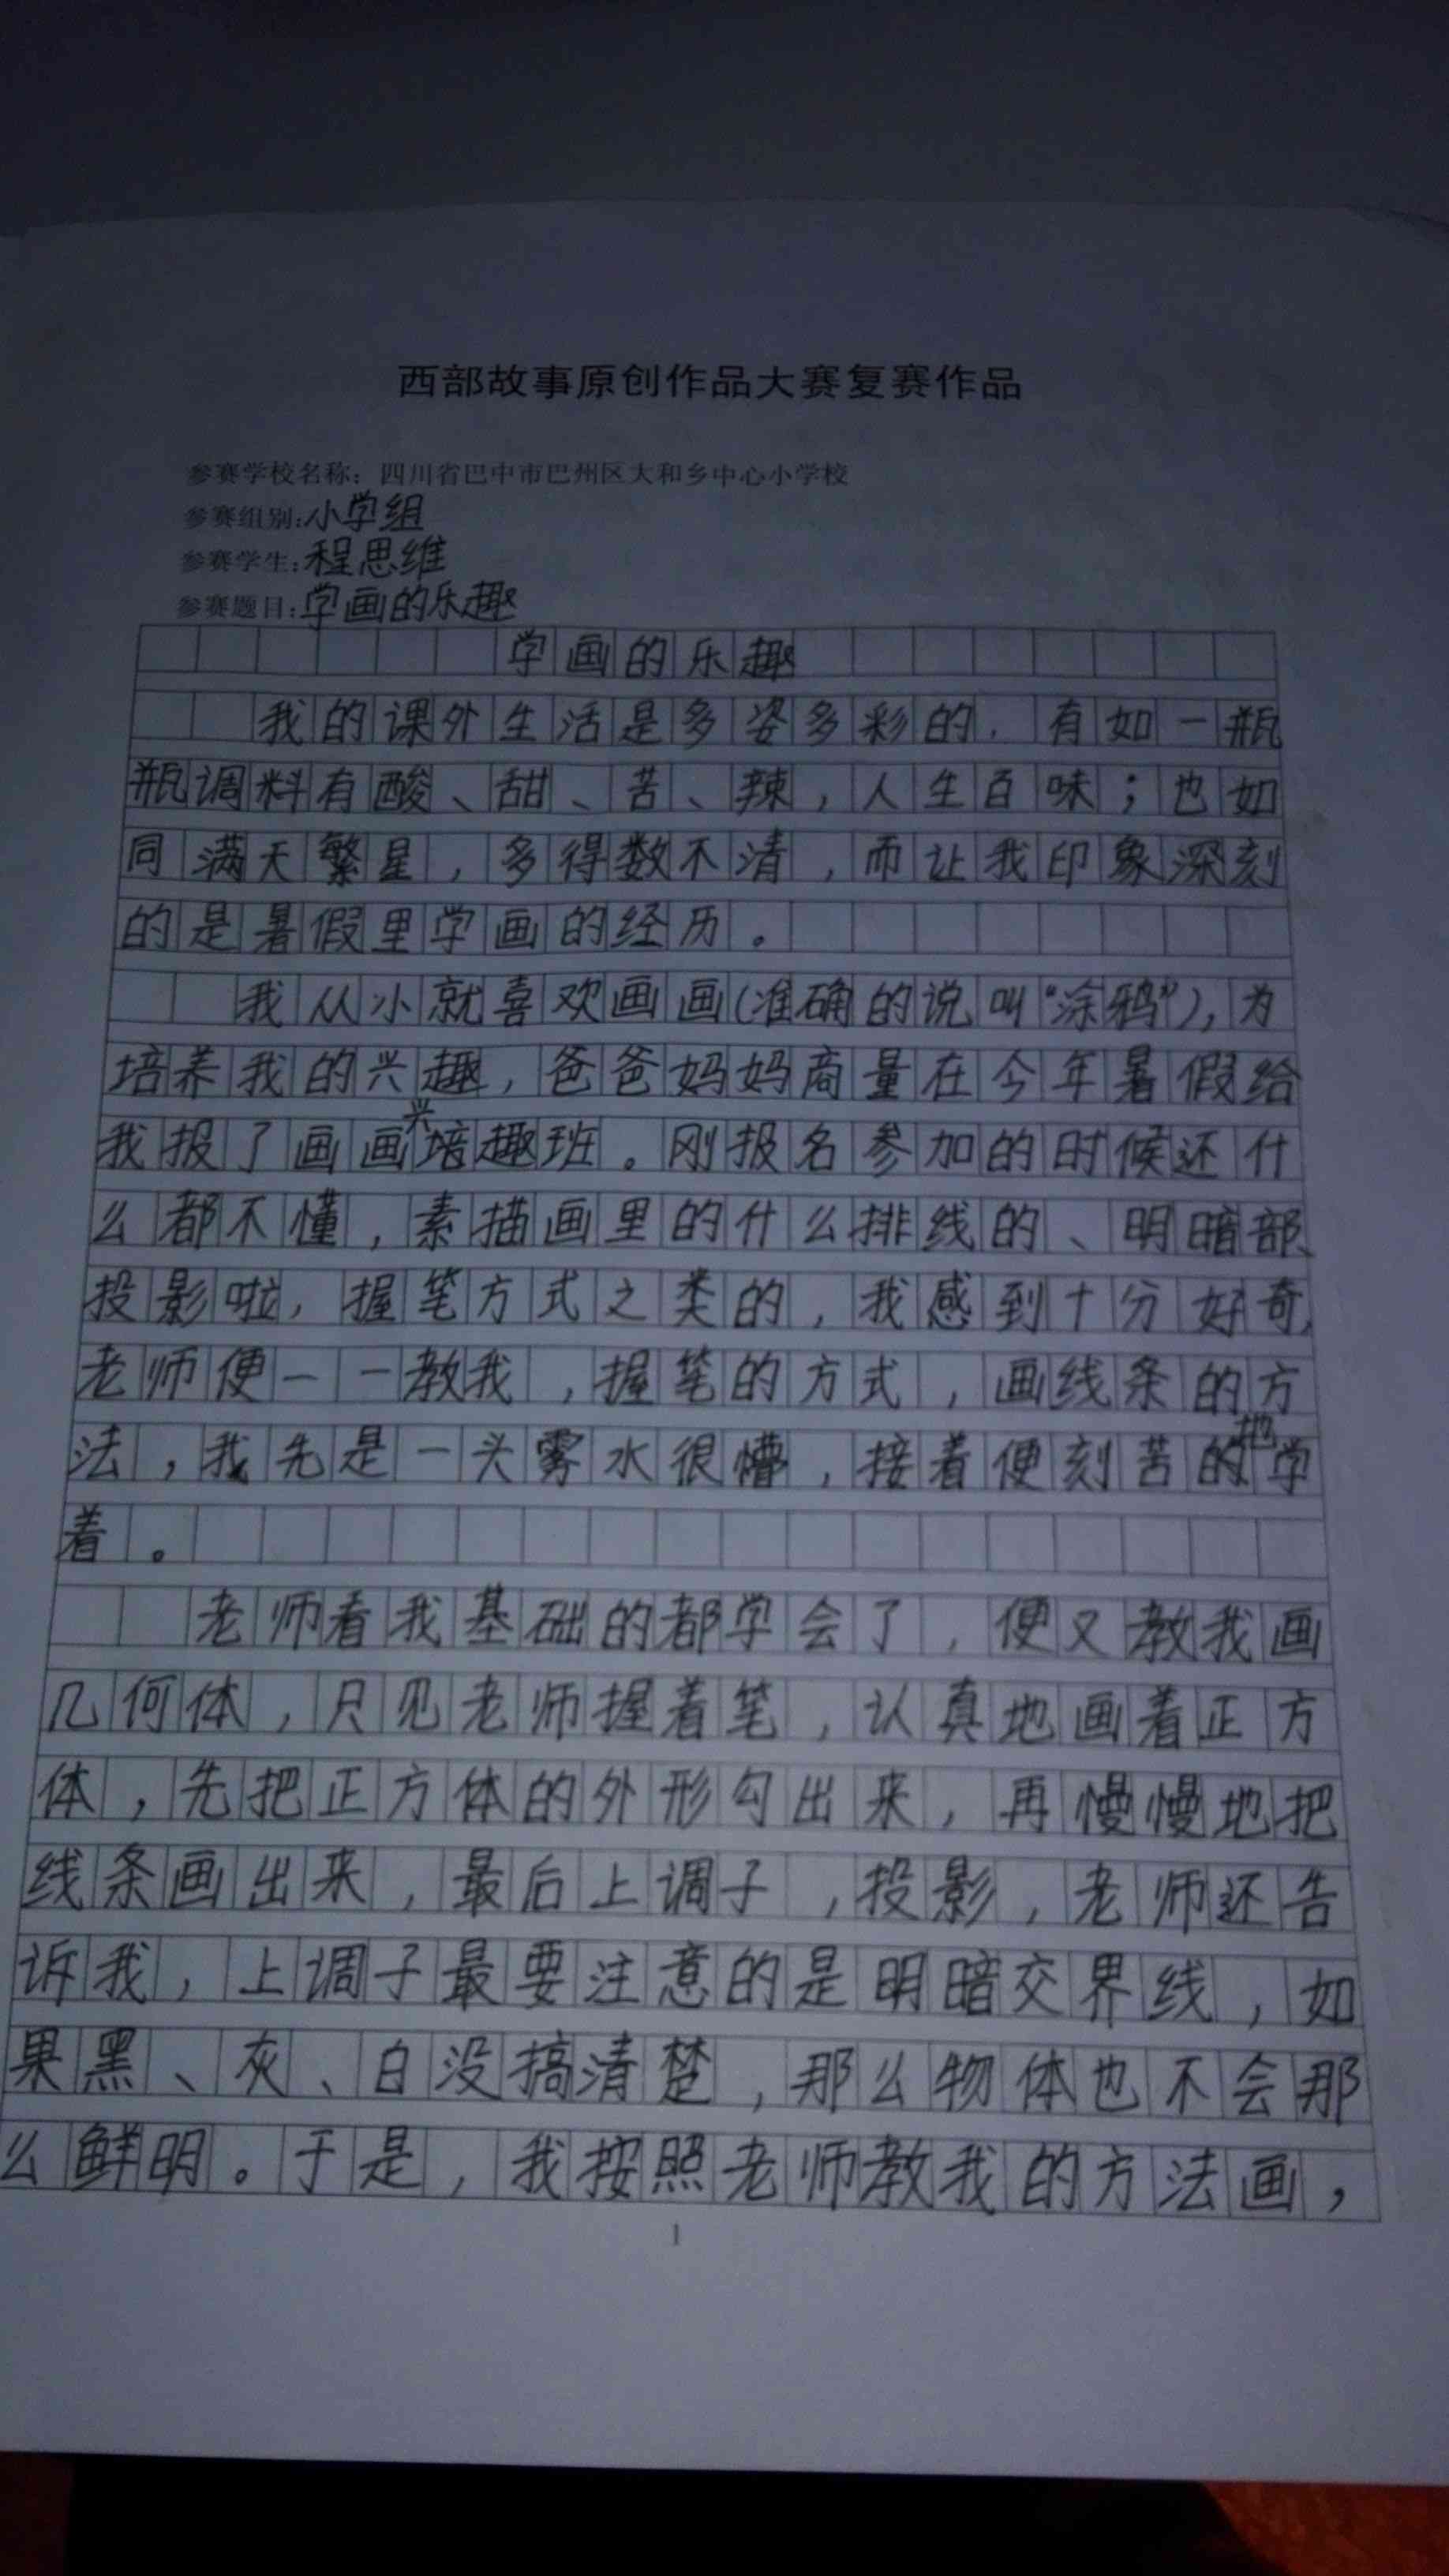 西部故事原创作品大赛复赛作品
参赛学校名称：四川省巴中市巴州区大和乡中心小学校
参赛组别:小学组
参赛学生:程思维
参赛题目:学画的乐趣
学画的乐趣
我的课外生活是多姿多彩的，有如一瓶
瓶调料有酸、甜、苦、辣，人生百味；也如
同满天繁星，多得数不清，而让我印象深刻
的是暑假里学画的经历。
我从小就喜欢画画(准确的说叫“涂鸦”)，为
培养我的兴趣，爸爸妈妈商量在今年暑假给
我报了画画兴趣班。刚报名参加的时候还什
么都不懂，素描画里的什么排线的、明暗部、
投影啦，握笔方式之类的，我感到十分好奇，
老师便一一教我，握笔的方式，画线条的方
法，我先是一头雾水很懵，接着便刻苦地学
着。
老师看我基础的都学会了，便又教我画
几何体，只见老师握着笔，认真地画着正方
体，先把正方体的外形勾出来，再慢慢地把
线条画出来，最后上调子，投影，老师还告
诉我，上调子最要注意的是明暗交界线，如
果黑、灰、白没搞清楚，那么物体也不会那
么鲜明。于是，我按照老师教我的方法画，
1